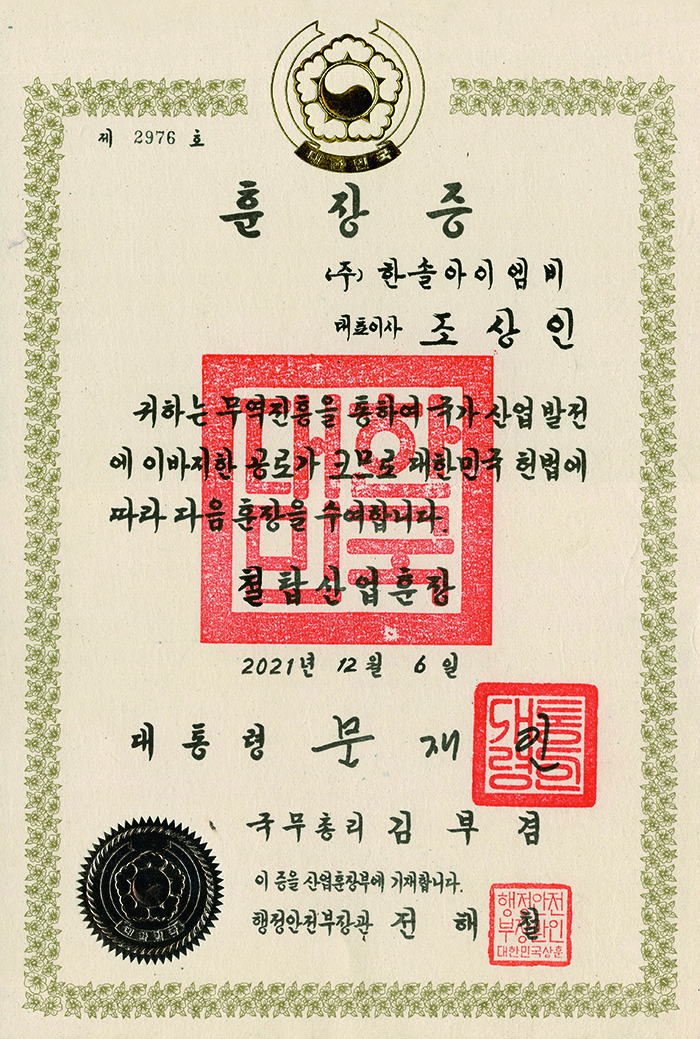 대한민국
제 2976 호
훈장증
(주) 한솔아이엠비
대표이사 조상인
귀하는 무역진흥을 통하여 국가 산업 발전
에 이바지한 공로가 크므로 대한민국 헌법에
따라 다음 훈장을 수여합니다.
대한
민국
철탑산업훈장
2021년 12월 6일
대통령 문재인
국무총리 김부겸
이 증을 산업훈장부에 기재합니다.
행정안전부장관 전해철
행정안전
부장관인
대한민국상훈
대한민국